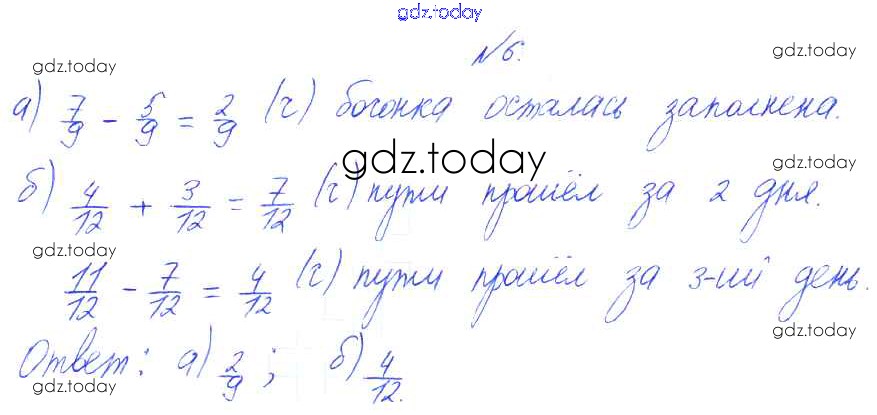 gdz.today
№6.
gdz.today gdz.today
а) 7/9 - 5/9 = 2/9 (ч) бочонка осталась заполнена.
gdz.today
gdz.today
б) 4/12 + 3/12 = 7/12 (ч) пути прошёл за 2 дня.
gdz.today
11/12 - 7/12 = 4/12 (ч) пути прошёл за 3-ий день.
gdz.today
Ответ: а) 2/9; б) 4/12.
gdz.today